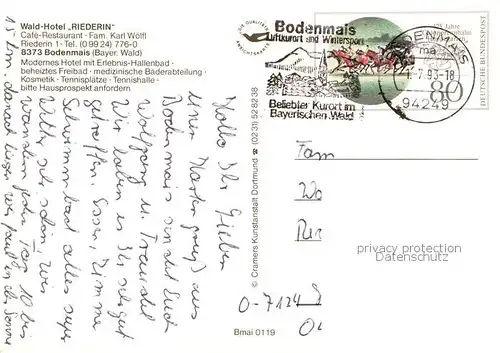 Wald-Hotel "RIEDERIN"
Café-Restaurant · Fam. Karl Wölfl
Riederin 1 · Tel. (0 99 24) 776-0
8373 Bodenmais (Bayer. Wald)
Modernes Hotel mit Erlebnis-Hallenbad ·
beheiztes Freibad · medizinische Bäderabteilung ·
Kosmetik · Tennisplätze · Tennishalle ·
bitte Hausprospekt anfordern
DIE QUALITÄTS
ANSICHTSKARTE
Bodenmais
Luftkurort und Wintersport
Beliebter Kurort im
Bayerischen Wald
DENMAIS
-7.93-18
94249
125 Jahre
80
DEUTSCHE BUNDESPOST
Hallo Ihr Lieben
Einen Kartengruß aus
Bodenmais senden Euch
Wolfgang u. Traudel
Wir haben es sehr gut
getroffen. Essen, Zimmer
Schwimmbad alles super
Wetter sehr schön, wir
wandern jeden Tag 10 bis
15 km. danach liegen wir faul in der Sonne
© Cramers Kunstanstalt Dortmund ☎ (0231) 52 82 38
Bmai 0119
Fam
Wo
O-7124
privacy protection
Datenschutz